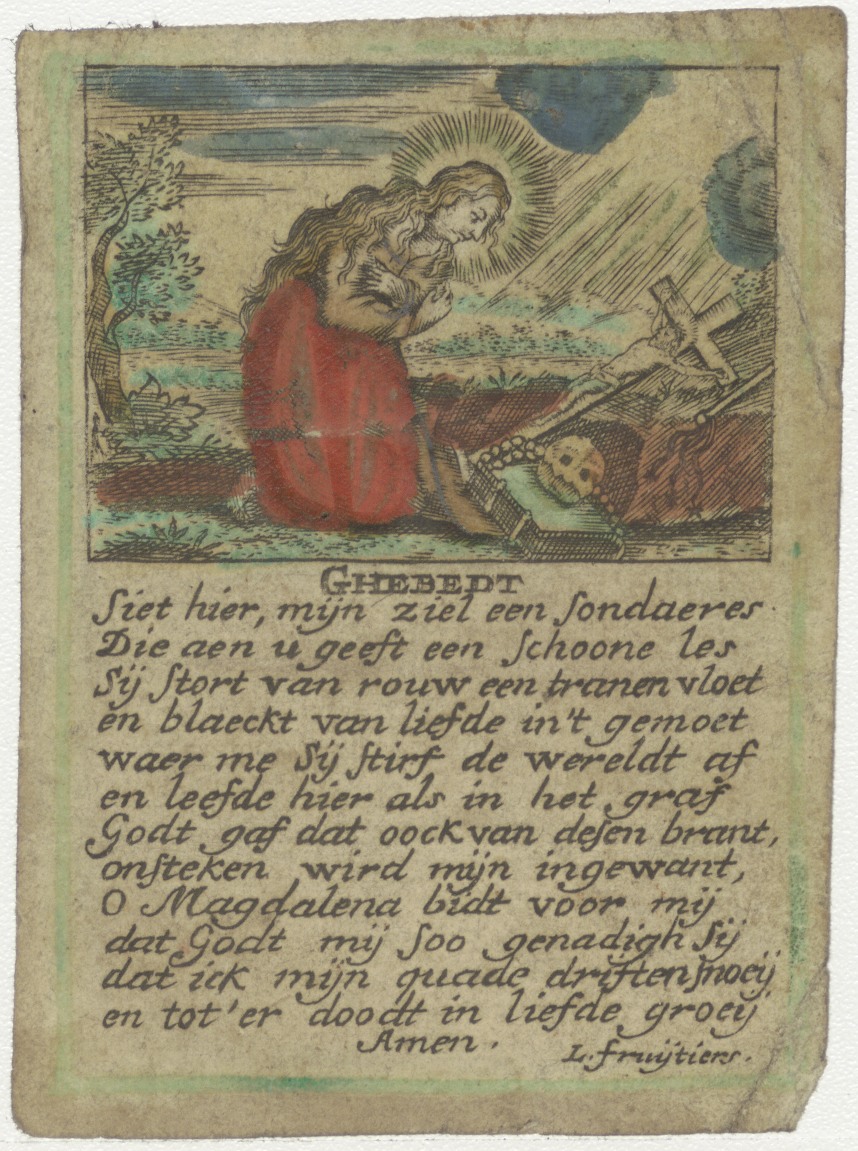 GHEBEDT
Siet hier, mijn ziel een sondaeres
Die aen u geeft een schoone les
Sij stort van rouw een tranen vloet
en blaeckt van liefde in't gemoet
waer me Sij stirf de wereldt af
en leefde hier als in het graf
Godt gaf dat oock van desen brant,
onsteken wird mijn ingewant,
O Magdalena bidt voor mij
dat Godt mij soo genadigh sij
dat ick mijn quade driften snoeij
en tot'er doodt in liefde groeij
Amen.
L. fruijtiers.